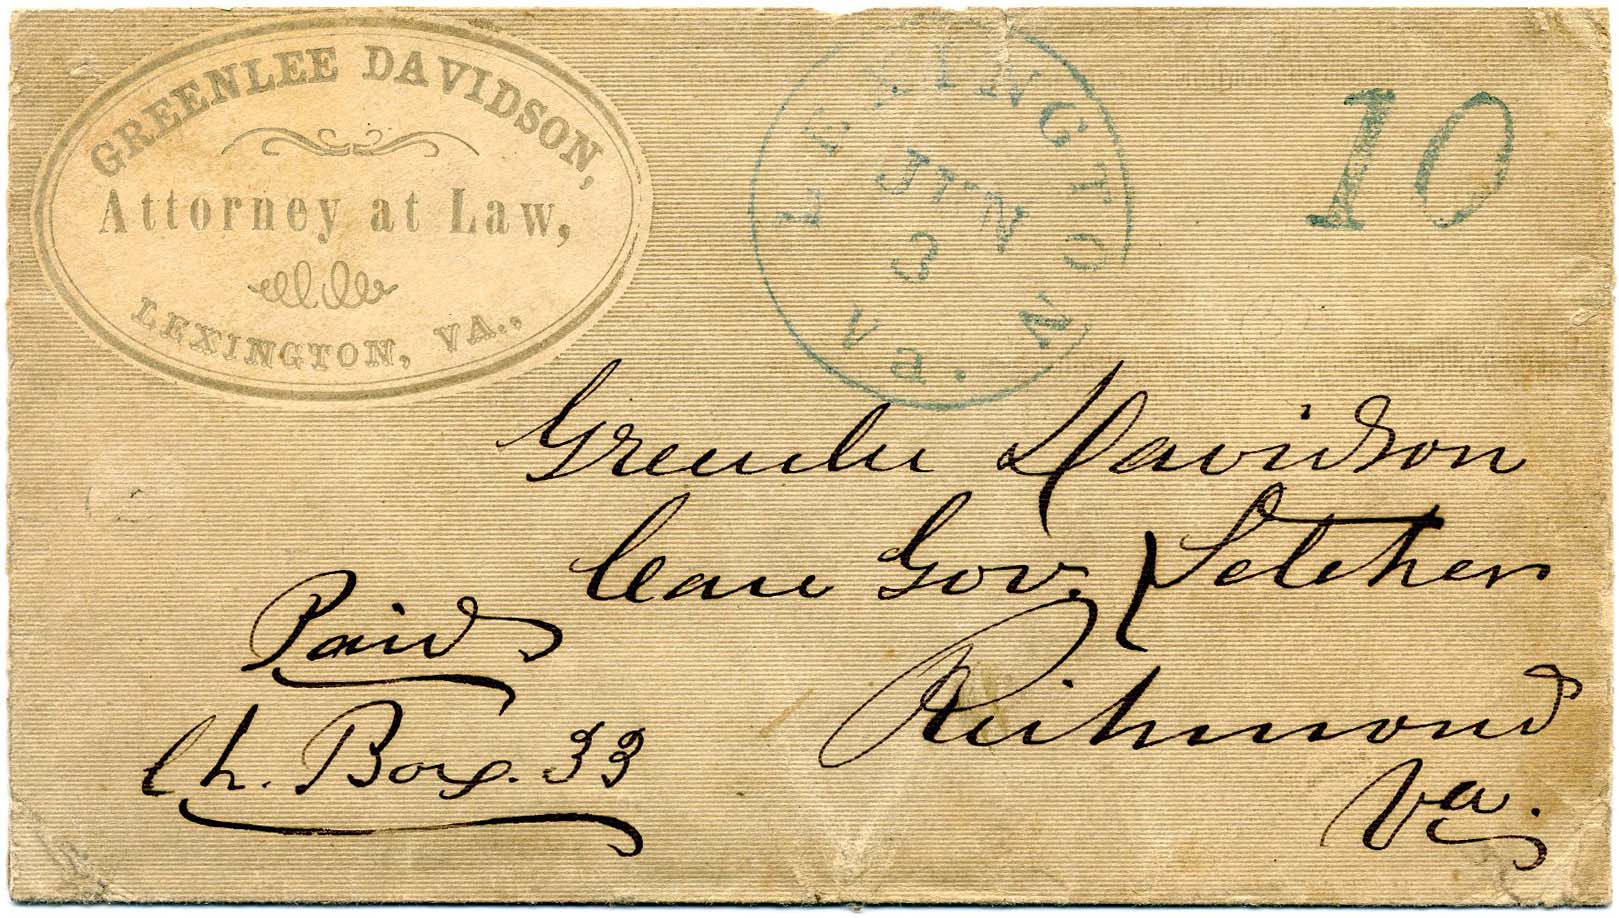 GREENLEE DAVIDSON,
Attorney at Law,
LEXINGTON, VA.,
LEXINGTON
JUN
3
Va.
10
Greenlee Davidson
Care Gov. Letcher
Richmond
Va.
Paid
Ch. Box. 33